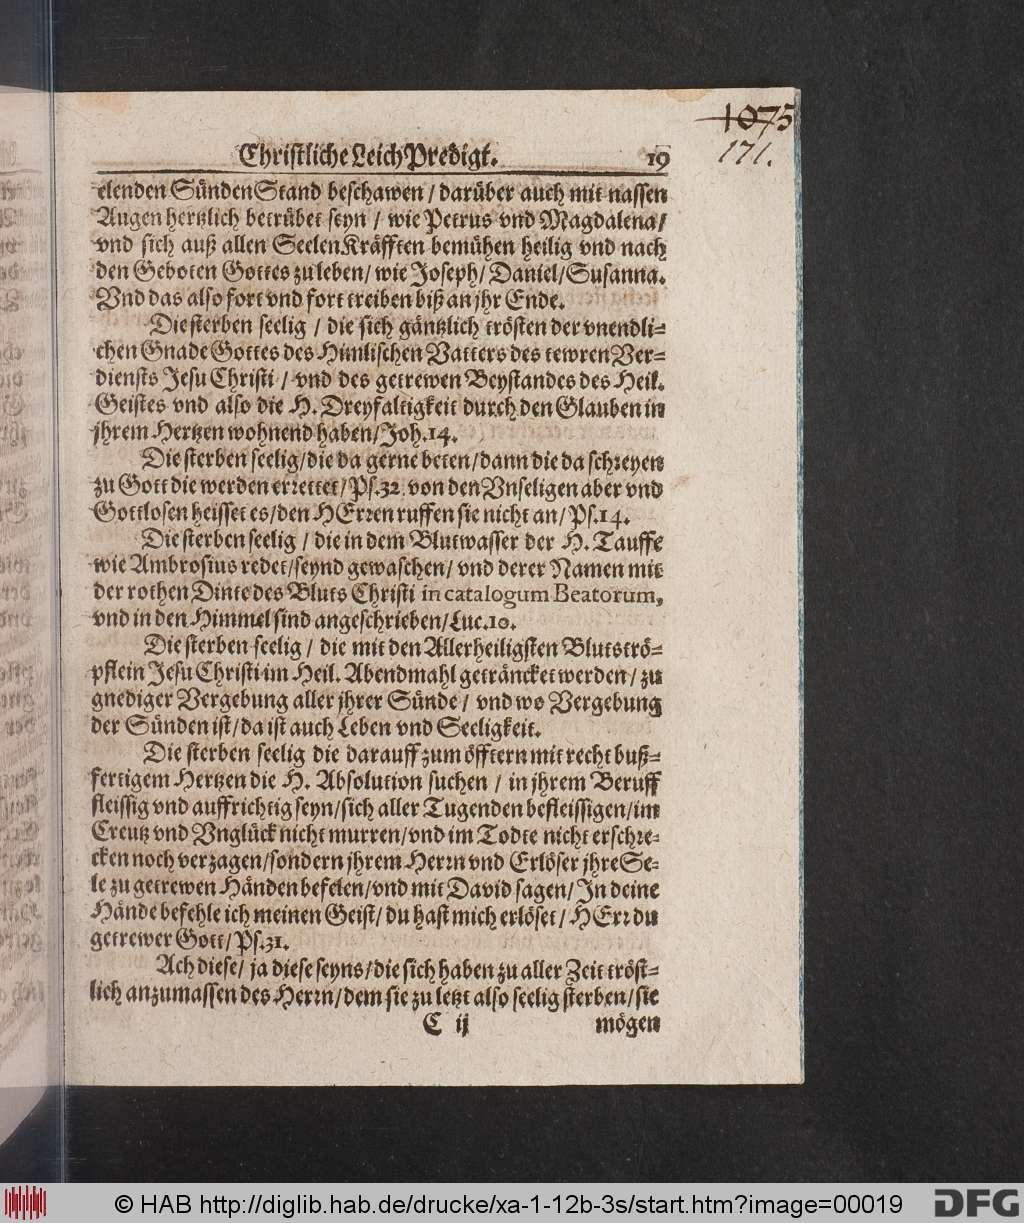 1075
171.
Christliche LeichPredigt. 19
elenden SündenStand beschawen / darüber auch mit nassen
Augen hertzlich betrübet seyn / wie Petrus vnd Magdalena /
vnd sich auß allen SeelenKräfften bemühen heilig vnd nach
den Geboten Gottes zu leben / wie Joseph / Daniel / Susanna.
Vnd das also fort vnd fort treiben biß an jhr Ende.
Die sterben seelig / die sich gäntzlich trösten der vnendli=
chen Gnade Gottes des Him̃lischen Vatters des tewren Ver=
diensts Jesu Christi / vnd des getrewen Beystandes des Heil.
Geistes vnd also die H. Dreyfaltigkeit durch den Glauben in
jhrem Hertzen wohnend haben / Joh. 14.
Die sterben seelig / die da gerne beten / dann die da schreyen
zu Gott die werden errettet / Ps. 32. von den Vnseligen aber vnd
Gottlosen heisset es / den HErren ruffen sie nicht an / Ps. 14.
Die sterben seelig / die in dem Blutwasser der H. Tauffe
wie Ambrosius redet / seynd gewaschen / vnd derer Namen mit
der rothen Dinte des Bluts Christi in catalogum Beatorum,
vnd in den Himmel sind angeschrieben / Luc. 10.
Die sterben seelig / die mit den Allerheiligsten Blutströ=
pflein Jesu Christi im Heil. Abendmahl geträncket werden / zu
gnediger Vergebung aller jhrer Sünde / vnd wo Vergebung
der Sünden ist / da ist auch Leben vnd Seeligkeit.
Die sterben seelig die darauff zum öfftern mit recht buß=
fertigem Hertzen die H. Absolution suchen / in jhrem Beruff
fleissig vnd auffrichtig seyn / sich aller Tugenden befleissigen / im
Creutz vnd Vnglück nicht murren / vnd im Todte nicht erschre=
cken noch verzagen / sondern jhrem Herrn vnd Erlöser jhre See=
le zu getrewen Händen befelen / vnd mit David sagen / In deine
Hände befehle ich meinen Geist / du hast mich erlöset / HErr du
getrewer Gott / Ps. 31.
Ach diese / ja diese seyns / die sich haben zu aller Zeit tröst=
lich anzumassen des Herrn / dem sie zu letzt also seelig sterben / sie
C ij mögen
© HAB http://diglib.hab.de/drucke/xa-1-12b-3s/start.htm?image=00019
DFG